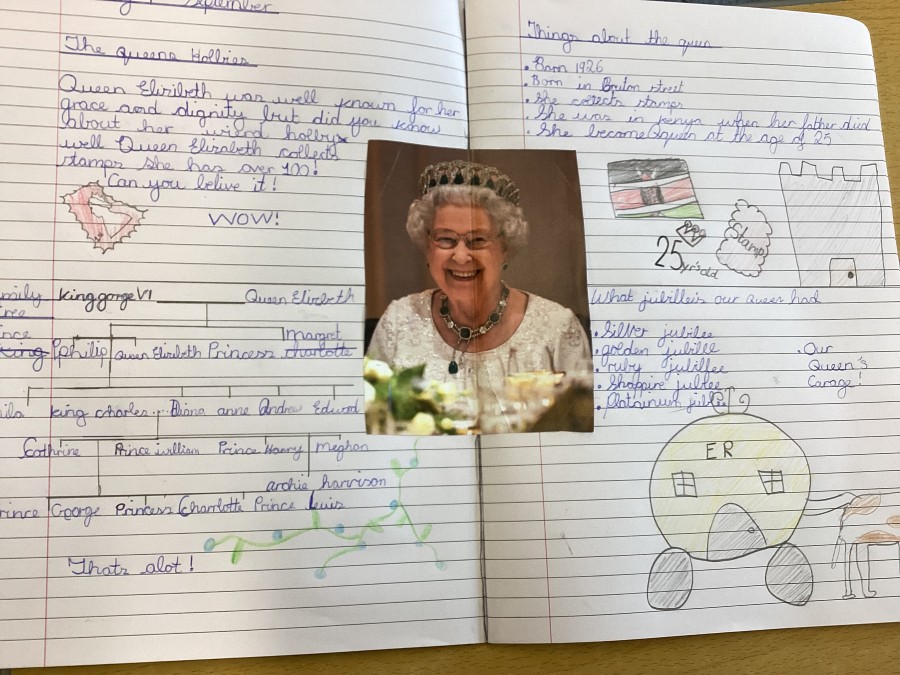 September
The Queens Hollies
Queen Elizibeth was well known for her
grace and dignity but did you know
about her wierd hollbys
well Queen Elizabeth collects
stamps she has over 100!
Can you belive it!
WOW!
King gorge VI
Queen Elizbeth
Margret
King Pphilip Queen Elizabeth Princess charlotte
King charles Diana anne Andrew Edward
Cathrine Prince william Prince Harry meghan
archie harrison
George Princess Charlotte Prince Luis
Thats alot!
Things about the queen
• Born 1926
• Born in Bruton street
• She collects stamps
• She was in kenya when her father died
• She became Queen at the age of 25
25 yrs old
Stamp
What jubilleis our Queen had
• Silver jubilee
• golden jubilee
• ruby jubillee
• Shappire jubilee
• Platainum
• Our
Queen's
Carage!
ER